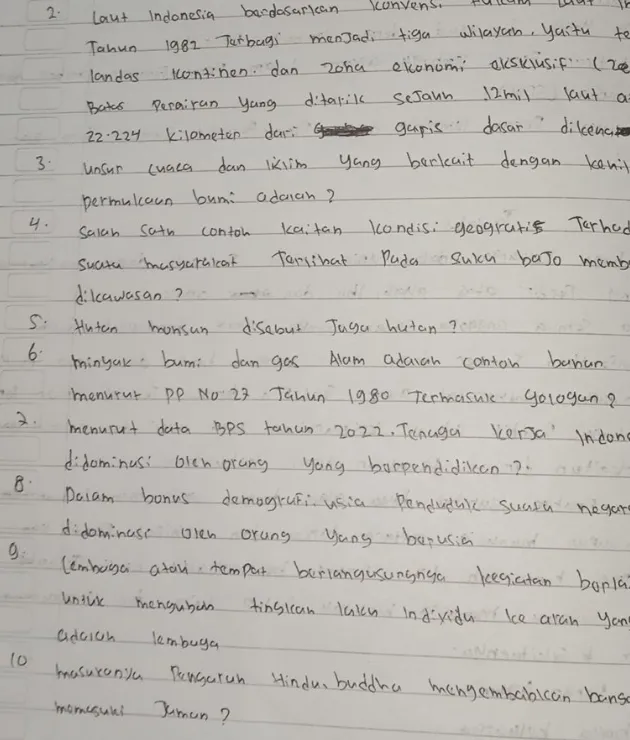 2. Laut Indonesia berdasarkan konvens.
Tahun 1982 Terbagi menjadi tiga wilayah, yaitu te
landas kontinen. dan zona ekonomi eksklusif (ze
Batas Perairan yang ditarik sejauh 12 mil laut a
22.224 kilometer dari garis dasar dikena
3. unsur cuaca dan iklim yang berkait dengan
permukaan bumi adalah?
4. salah satu contoh kaitan kondisi geografis Terhad
suatu masyarakat Terlihat Pada suku bajo memb
dikawasan?
5. Hutan monsun disebut Juga hutan?
6. minyak bumi dan gas Alam adalah contoh bahan
menurut PP No 27 Tahun 1980 Termasuk gologan?
7. menurut data BPS tahun 2022. Tenaga kerja Indone
didominasi oleh orang yang berpendidikan?.
8. Dalam bonus demografi. usia Penduduk suatu negar
didominasi oleh orang yang berusia
9. lembaga atau tempat berlangusungnya kegiatan
untuk mengubah tingkah laku individu ke arah yan
adalah lembaga
10 masuknya Pengaruh Hindu, buddha bangs
memasuki Jaman?